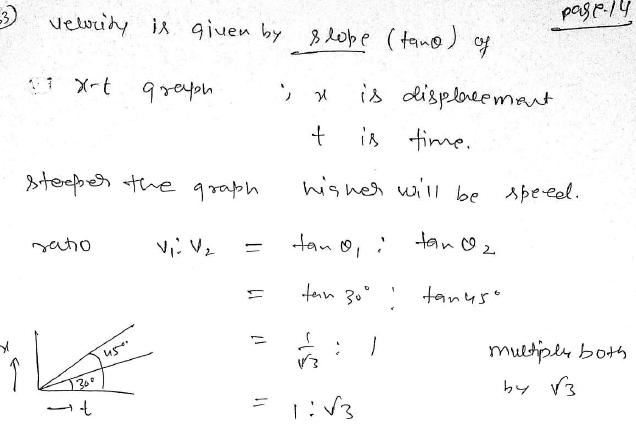 3) velocity is given by slope (tanθ) of page-14
x-t graph ; x is displacement
t is time.
steeper the graph higher will be speed.
ratio v₁ : v₂ = tan θ₁ : tan θ₂
= tan 30° : tan 45°
= 1/√3 : 1 multiply both by √3
= 1 : √3
x ↑ 45° 30° → t